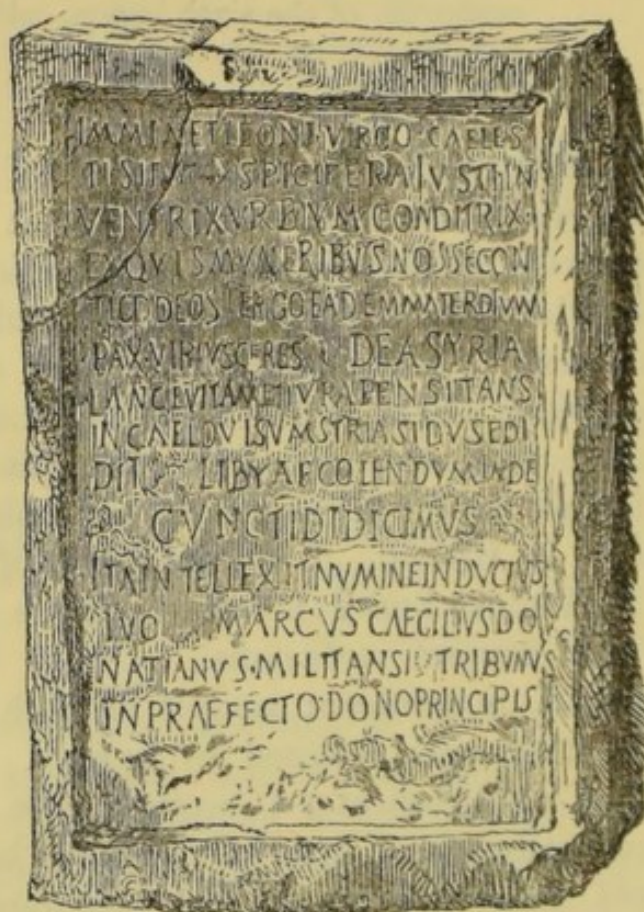 IMMINET LEONI · VIRGO · CAELES
TI SITV SPICIFERA IVSTI IN
VENTRIX VRBIVM CONDITRIX ·
EX QVIS MVNERIBVS NOSSE CON
TIGIT DEOS ERGO EADEM MATER DIVVM
PAX VIRTVS CERES DEA SYRIA
LANCE VITAM ET IVRA PENSITANS
IN CAELO VISVM SYRIA SIDVS EDI
DIT LIBYAE COLENDVM INDE
CVNCTI DIDICIMVS
ITA INTELLEXIT NVMINE INDVCTVS
TVO MARCVS CAECILIVS DO
NATIANVS · MILITANS TRIBVNVS
IN PRAEFECTO · DONO PRINCIPIS